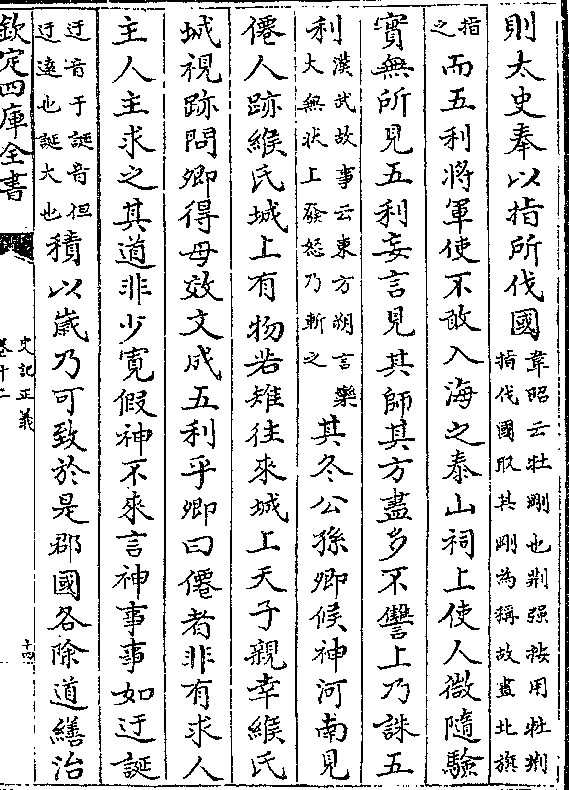 則太史奉以指所伐國韋昭云牡剛也荆强按用牡荆指伐國取其剛為稱故畫北旗
指之而五利將軍使不敢入海之泰山祠上使人微隨驗
實無所見五利妄言見其師其方盡多不讐上乃誅五
利漢武故事云東方朔言欒大無狀上發怒乃斬之其冬公孫卿候神河南見
僊人跡緱氏城上有物若雉往來城上天子親幸緱氏
城視跡問卿得毋效文成五利乎卿曰僊者非有求人
主人主求之其道非少寛假神不來言神事事如迂誕
迂音于誕音但迂遠也誕大也積以歲乃可致於是郡國各除道繕治
欽定四庫全書
史記正義
卷十二
十四